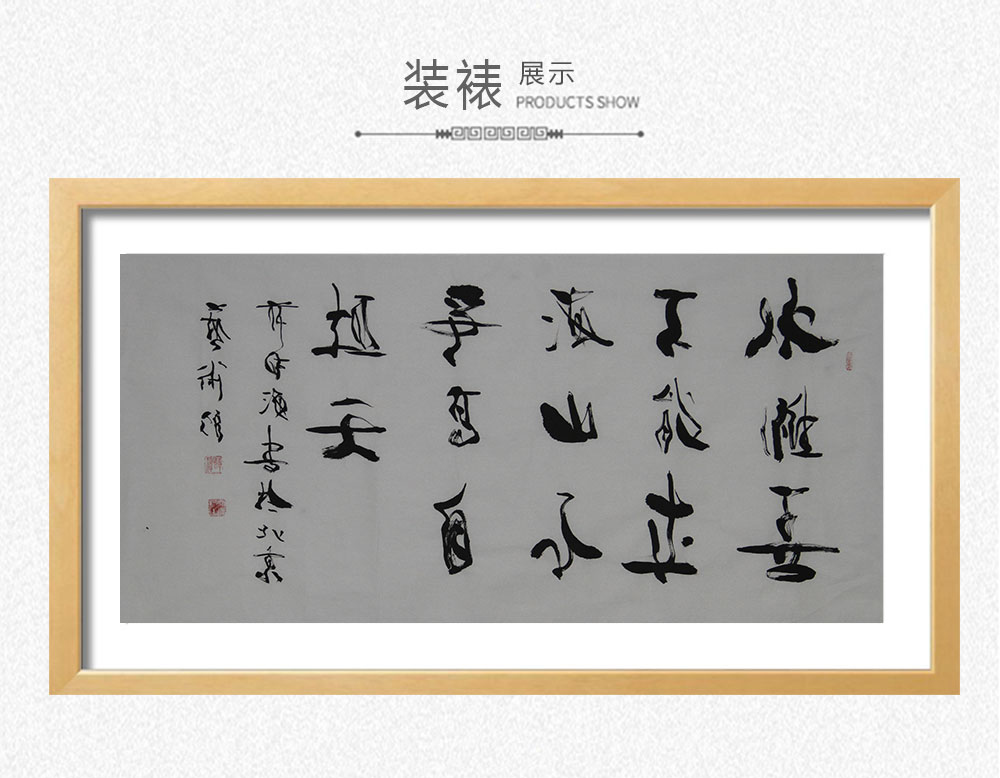 装裱 展示
PRODUCTS SHOW
水唯善
下能成
海山不
争高自
极天
书於北京
藝術